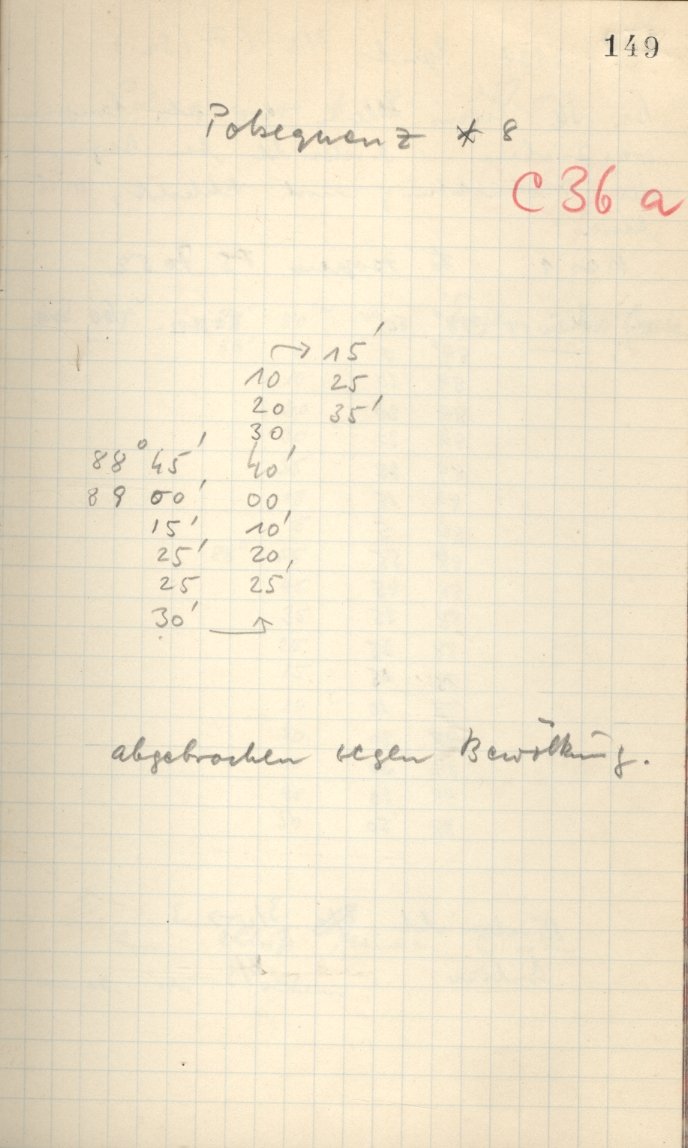 149
Polsequenz * 8
C 36 a
→ 15'
10 25
20 35'
30
88° 45' 40'
89 00' 00
15' 10'
25' 20,
25 25'
30' →
abgebrochen wegen Bewölkung.